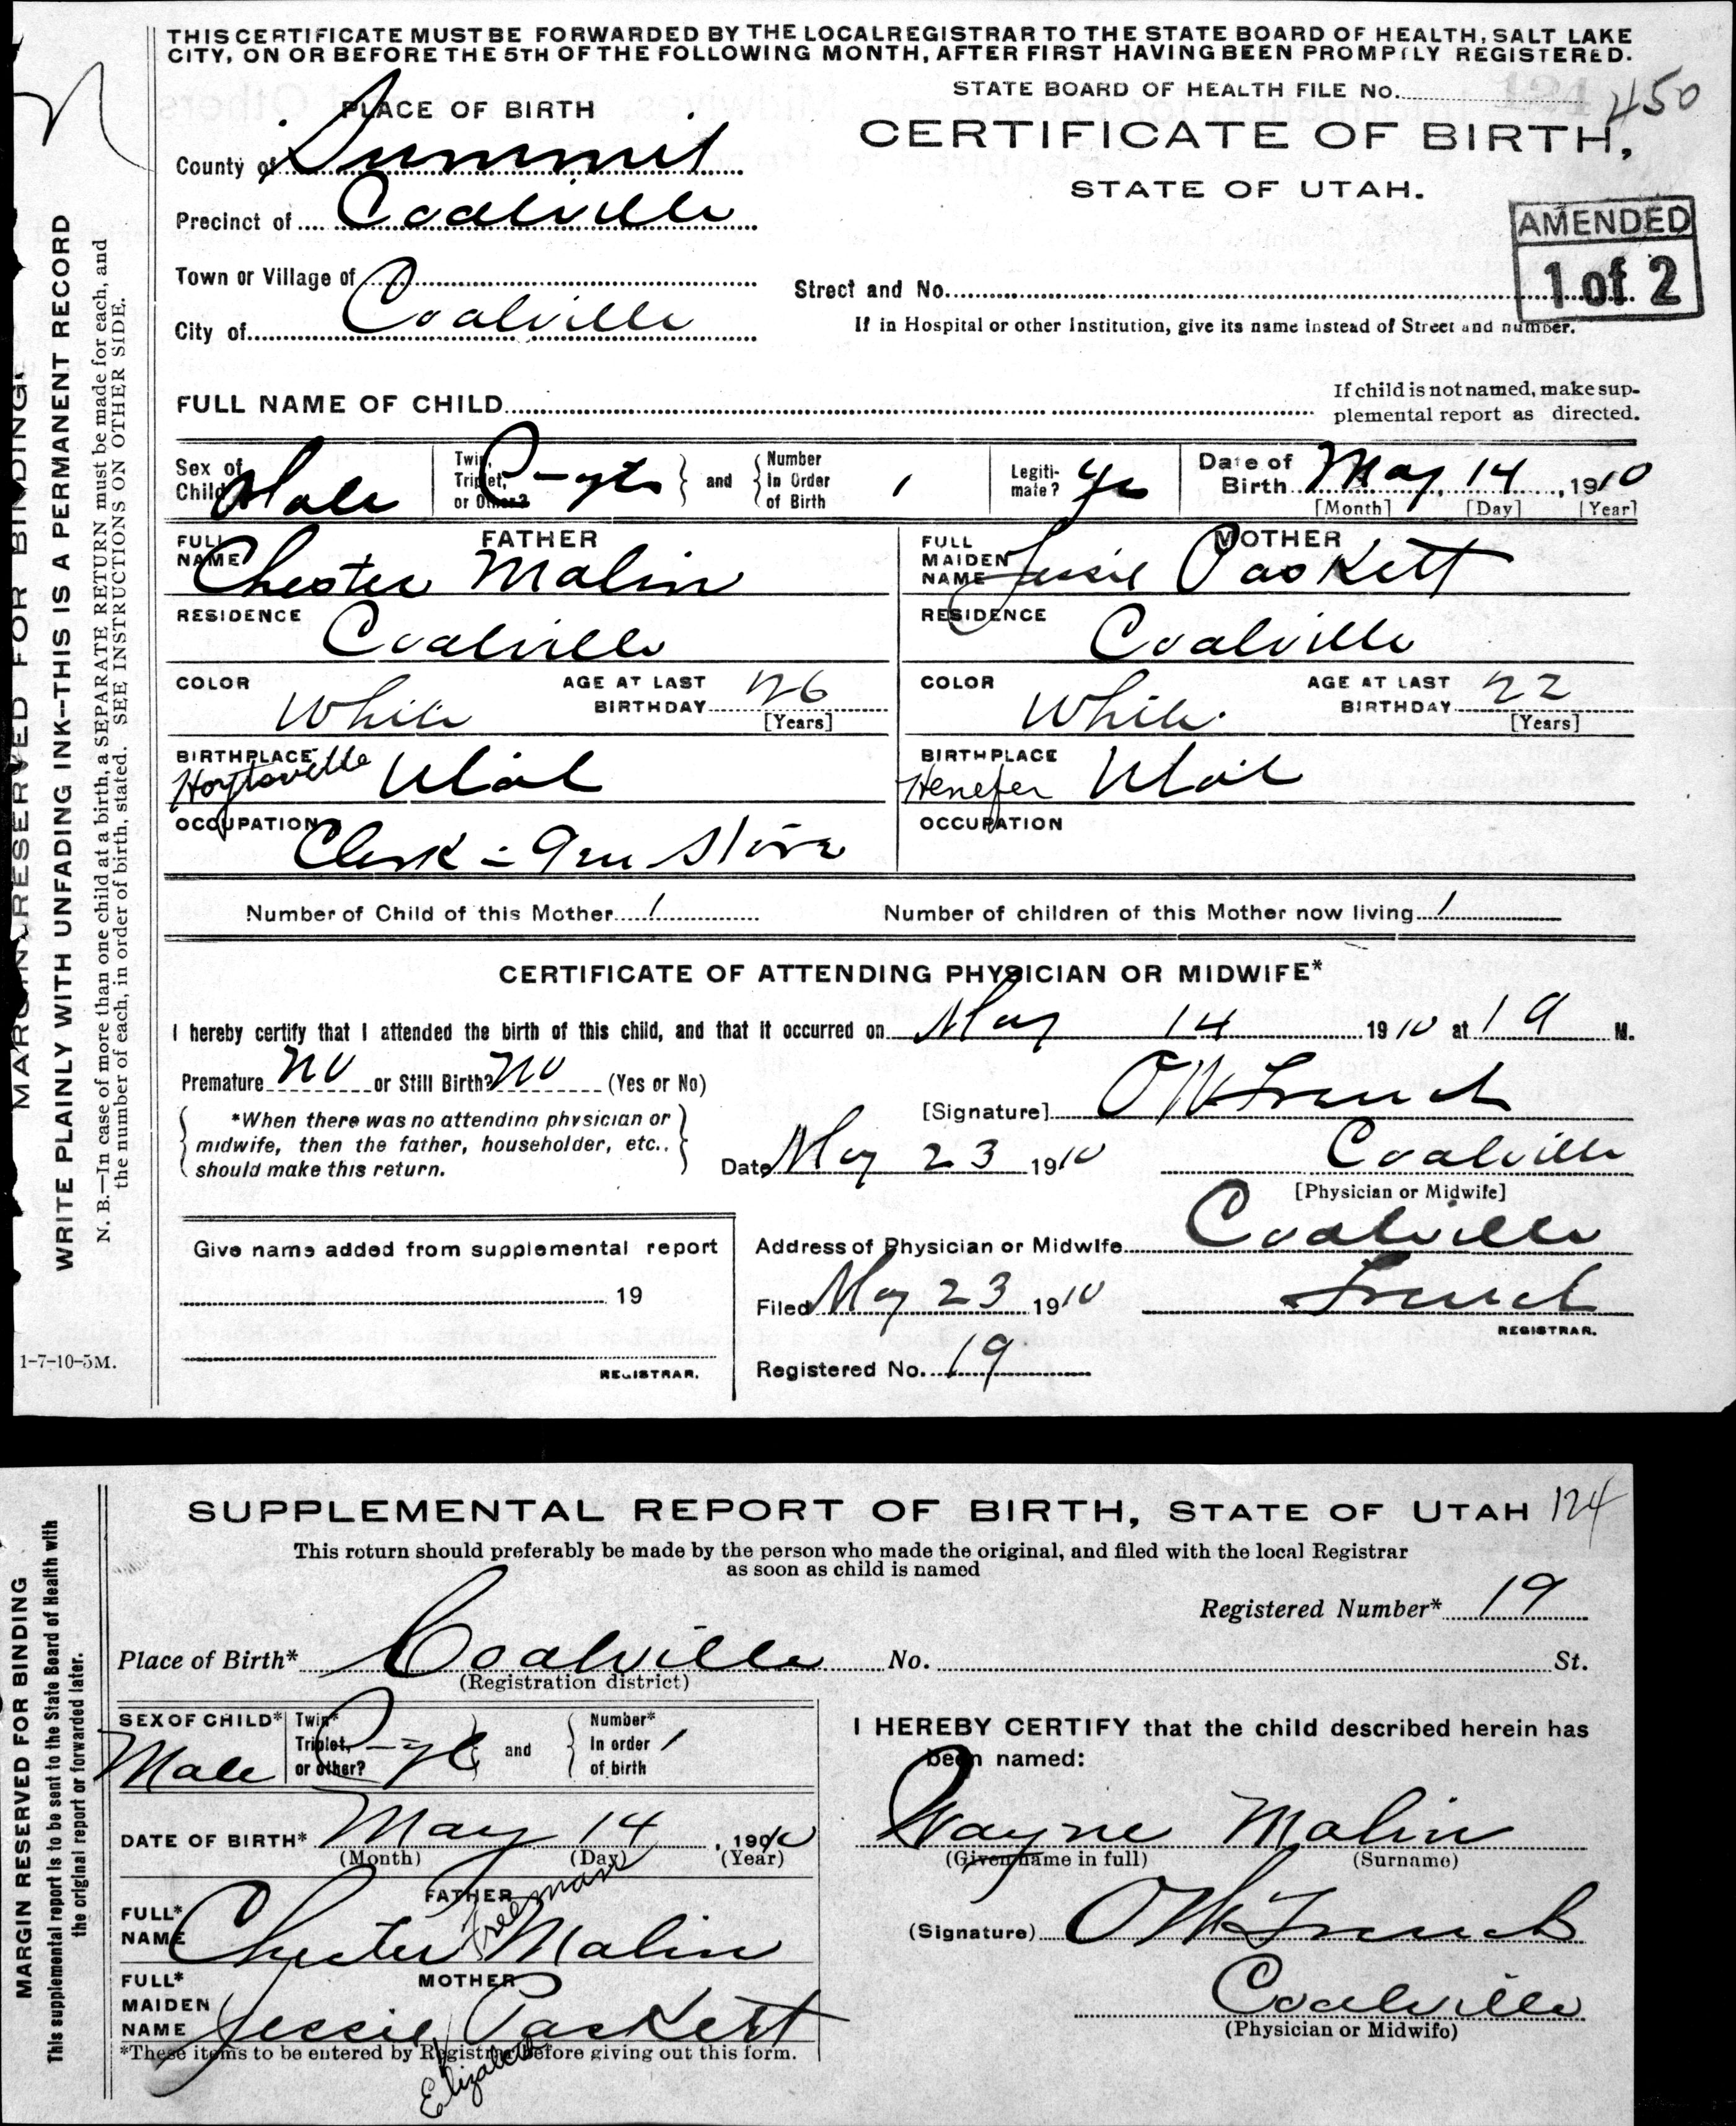 THIS CERTIFICATE MUST BE FORWARDED BY THE LOCAL REGISTRAR TO THE STATE BOARD OF HEALTH, SALT LAKE
CITY, ON OR BEFORE THE 5TH OF THE FOLLOWING MONTH, AFTER FIRST HAVING BEEN PROMPTLY REGISTERED.
STATE BOARD OF HEALTH FILE No. 450
PLACE OF BIRTH
CERTIFICATE OF BIRTH,
STATE OF UTAH.
County of Summit
Precinct of Coalville
AMENDED
1 of 2
Town or Village of
Street and No.
City of Coalville
If in Hospital or other Institution, give its name instead of Street and number.
FULL NAME OF CHILD
If child is not named, make sup-
plemental report as directed.
Sex of Child Male
Twin, Triplet, or Other?
and
Number In Order of Birth 1
Legiti- mate? Yes
Date of Birth May 14, 1910
[Month] [Day] [Year]
FATHER
FULL NAME Chester Malin
MOTHER
FULL MAIDEN NAME Jessie Paskett
RESIDENCE Coalville
RESIDENCE Coalville
COLOR White AGE AT LAST BIRTHDAY 26 [Years]
COLOR White. AGE AT LAST BIRTHDAY 22 [Years]
BIRTHPLACE Hoytsville Utah
BIRTHPLACE Henefer Utah
OCCUPATION Clerk - Gen Store
OCCUPATION
Number of Child of this Mother 1 Number of children of this Mother now living 1
CERTIFICATE OF ATTENDING PHYSICIAN OR MIDWIFE*
I hereby certify that I attended the birth of this child, and that it occurred on May 14 1910 at 1 a M.
Premature No or Still Birth? No (Yes or No)
*When there was no attending physician or
midwife, then the father, householder, etc.,
should make this return.
[Signature] O W French
Date May 23 1910 Coalville
[Physician or Midwife]
Give name added from supplemental report
19
REGISTRAR.
Address of Physician or Midwife Coalville
Filed May 23 1910 French
REGISTRAR.
Registered No. 19
1-7-10-5M.
MARGIN RESERVED FOR BINDING.
WRITE PLAINLY WITH UNFADING INK--THIS IS A PERMANENT RECORD
N. B.—In case of more than one child at a birth, a SEPARATE RETURN must be made for each, and
the number of each, in order of birth, stated. SEE INSTRUCTIONS ON OTHER SIDE.
SUPPLEMENTAL REPORT OF BIRTH, STATE OF UTAH 124
This return should preferably be made by the person who made the original, and filed with the local Registrar
as soon as child is named
Registered Number* 19
Place of Birth* Coalville No. St.
(Registration district)
SEX OF CHILD* Male
Twin* Triplet, or other?
and
Number* In order of birth 1
I HEREBY CERTIFY that the child described herein has
been named:
DATE OF BIRTH* May 14, 1910
(Month) (Day) (Year)
Wayne Malin
(Given name in full) (Surname)
FATHER
FULL* NAME Chester Freeman Malin
(Signature) O W French
MOTHER
FULL* MAIDEN NAME Jessie Elizabeth Paskett
Coalville
(Physician or Midwife)
*These items to be entered by Registrar before giving out this form.
MARGIN RESERVED FOR BINDING
This supplemental report is to be sent to the State Board of Health with
the original report or forwarded later.